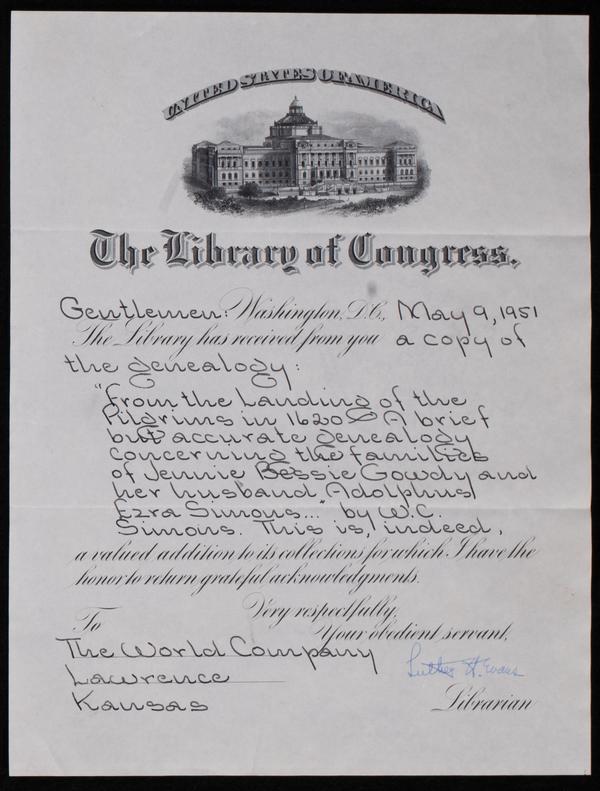 UNITED STATES OF AMERICA
The Library of Congress.
Gentlemen: Washington, D.C., May 9, 1951
The Library has received from you a copy of
the genealogy:
"From the Landing of the
Pilgrims in 1620 A brief
but accurate genealogy
concerning the families
of Jennie Bessie Gowdy and
her husband, Adolphus
Ezra Simons..." by W.C.
Simons. This is, indeed,
a valued addition to its collections for which I have the
honor to return grateful acknowledgments.
Very respectfully,
To
Your obedient servant,
The World Company
Luther H. Evans
Lawrence
Kansas
Librarian